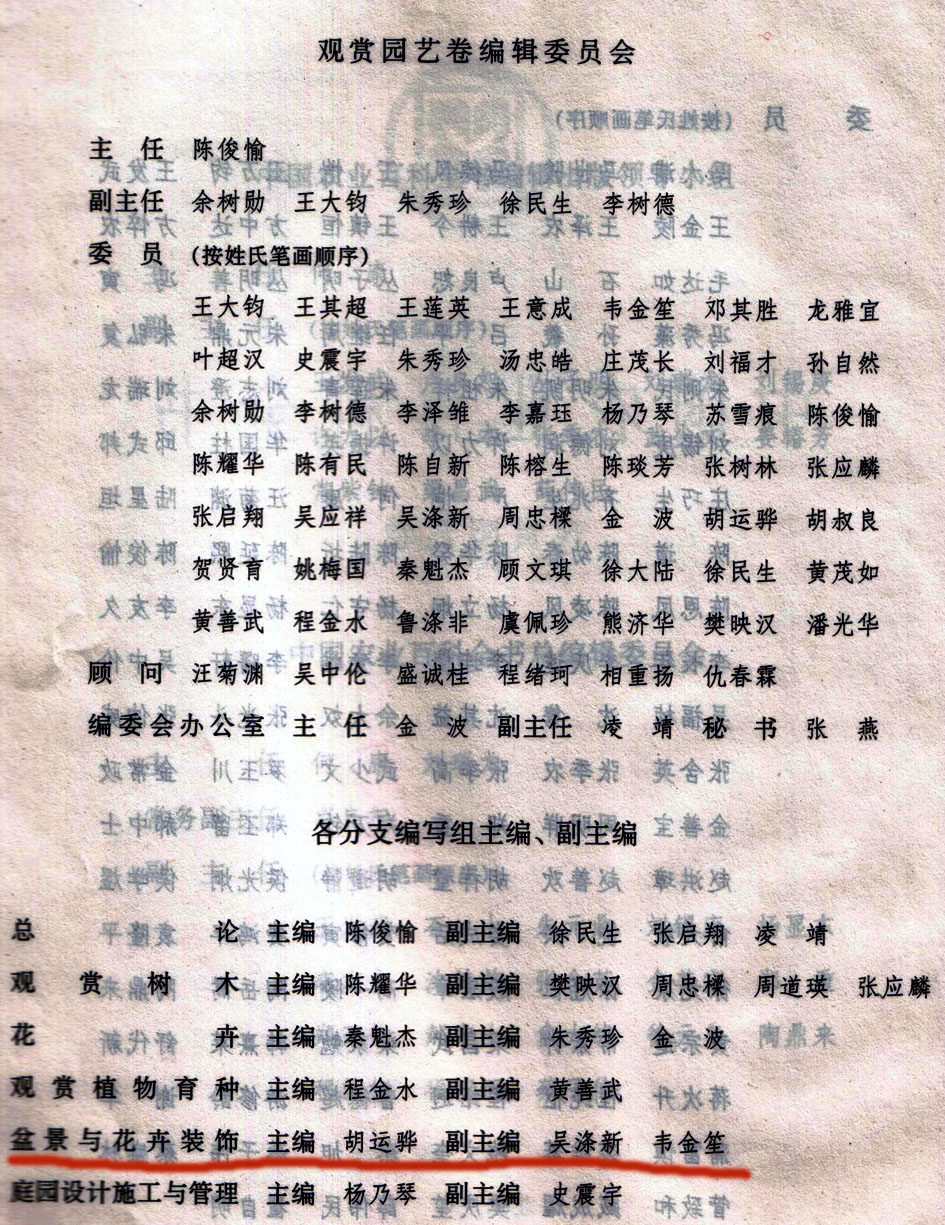 观赏园艺卷编辑委员会
主 任 陈俊愉
副主任 余树勋 王大钧 朱秀珍 徐民生 李树德
委 员 (按姓氏笔画顺序)
王大钧 王其超 王莲英 王意成 韦金笙 邓其胜 龙雅宜
叶超汉 史震宇 朱秀珍 汤忠皓 庄茂长 刘福才 孙自然
余树勋 李树德 李泽雏 李嘉珏 杨乃琴 苏雪痕 陈俊愉
陈耀华 陈有民 陈自新 陈榕生 陈琰芳 张树林 张应麟
张启翔 吴应祥 吴涤新 周忠樑 金 波 胡运骅 胡叔良
贺贤育 姚梅国 秦魁杰 顾文琪 徐大陆 徐民生 黄茂如
黄善武 程金水 鲁涤非 虞佩珍 熊济华 樊映汉 潘光华
顾 问 汪菊渊 吴中伦 盛诚桂 程绪珂 相重扬 仇春霖
编委会办公室 主 任 金 波 副主任 凌 靖 秘 书 张 燕
各分支编写组主编、副主编
总 论 主编 陈俊愉 副主编 徐民生 张启翔 凌 靖
观 赏 树 木 主编 陈耀华 副主编 樊映汉 周忠樑 周道瑛 张应麟
花 卉 主编 秦魁杰 副主编 朱秀珍 金 波
观赏植物育种 主编 程金水 副主编 黄善武
盆景与花卉装饰 主编 胡运骅 副主编 吴涤新 韦金笙
庭园设计施工与管理 主编 杨乃琴 副主编 史震宇